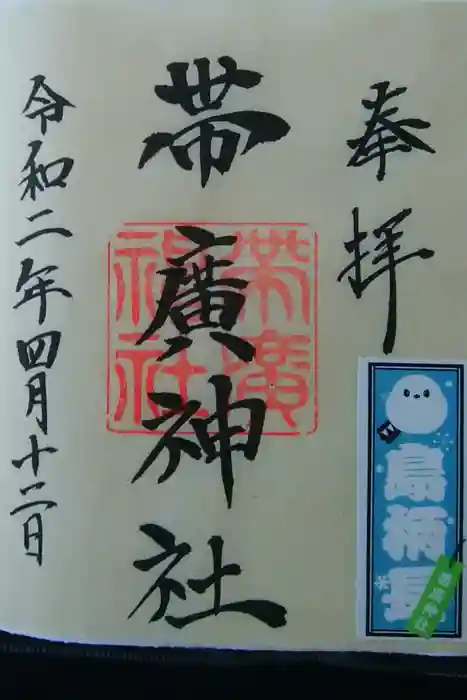 奉拝
帯廣神社
帯廣
神社
令和二年四月十二日
島柄長
帯廣神社